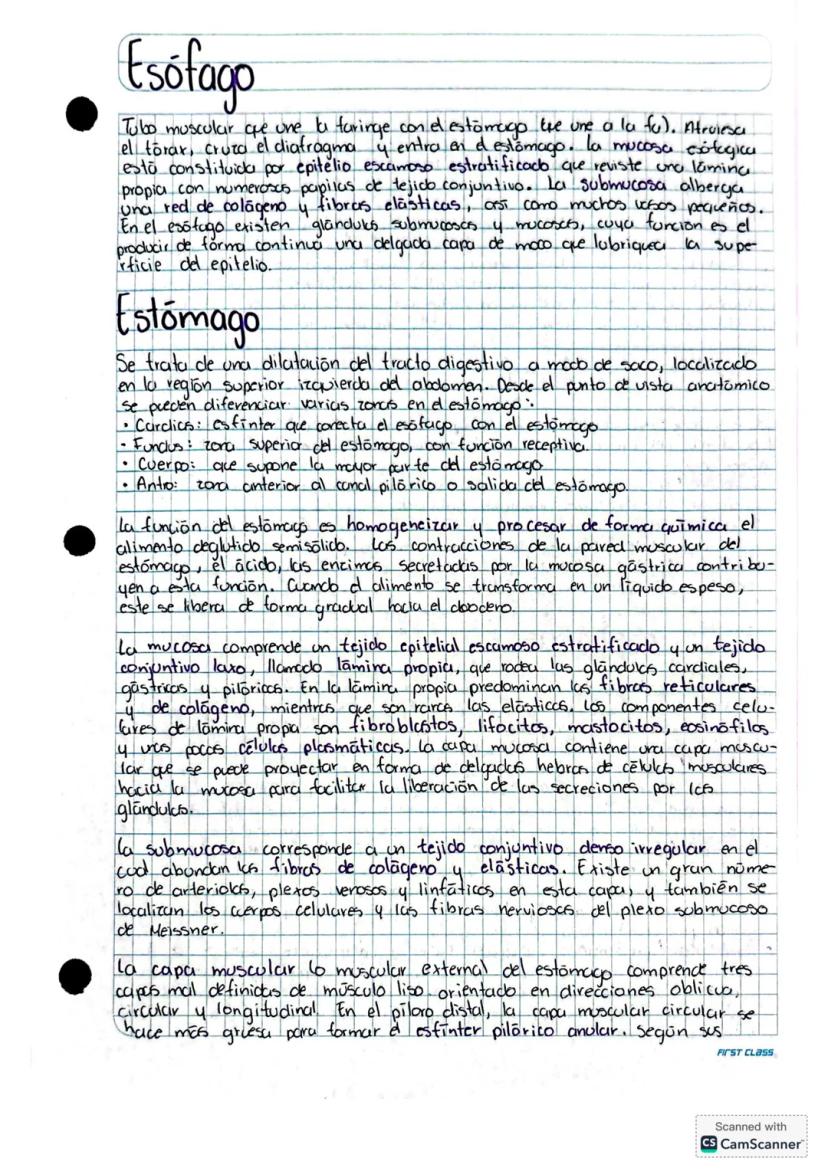 Esófago
Tubo muscular que une la faringe con el estómago (que une a la fa). Atraviesa
el tórax, cruza el diafragma y entra en el estómago. La mucosa esofágica
está constituida por epitelio escamoso estratificado que reviste una lámina
propia con numerosas papilas de tejido conjuntivo. La submucosa alberga
una red de colágeno y fibras elásticas, así como muchos vasos pequeños.
En el esófago existen glándulas submucosas y mucosas, cuya función es el
producir de forma continua una delgada capa de moco que lubriquea la supe-
rficie del epitelio.
Estómago
Se trata de una dilatación del tracto digestivo a modo de saco, localizado
en la región superior izquierda del abdomen. Desde el punto de vista anatómico
se pueden diferenciar varias zonas en el estómago:
• Cardias: esfínter que conecta el esófago con el estómago
• Fundus: zona superior del estómago, con función receptiva.
• Cuerpo: que supone la mayor parte del estómago
• Antro: zona anterior al canal pilórico o salida del estómago.
La función del estómago es homogeneizar y procesar de forma química el
alimento deglutido semisólido. Las contracciones de la pared muscular del
estómago, el ácido, las enzimas secretadas por la mucosa gástrica contribu-
yen a esta función. Cuando el alimento se transforma en un líquido espeso,
este se libera de forma gradual hacia el duodeno.
La mucosa comprende un tejido epitelial escamoso estratificado y un tejido
conjuntivo laxo, llamado lámina propia, que rodea las glándulas cardiales,
gástricas y pilóricas. En la lámina propia predominan las fibras reticulares
y de colágeno, mientras que son raras las elásticas. Los componentes celu-
lares de lámina propia son fibroblastos, lifocitos, mastocitos, eosinófilos
y unas pocas células plasmáticas. La capa mucosa contiene una capa muscu-
lar que se puede proyectar en forma de delgadas hebras de células musculares
hacia la mucosa para facilitar la liberación de las secreciones por las
glándulas.
La submucosa corresponde a un tejido conjuntivo denso irregular en el
cual abundan las fibras de colágeno y elásticas. Existe un gran núme-
ro de arteriolas, plexos venosos y linfáticos en esta capa, y también se
localizan los cuerpos celulares y las fibras nerviosas del plexo submucoso
de Meissner.
La capa muscular (o muscular externa) del estómago comprende tres
capas mal definidas de músculo liso orientado en direcciones oblicua,
circular y longitudinal. En el píloro distal, la capa muscular circular se
hace más gruesa para formar el esfínter pilórico anular. Según sus
FIRST CLASS
Scanned with
CS CamScanner